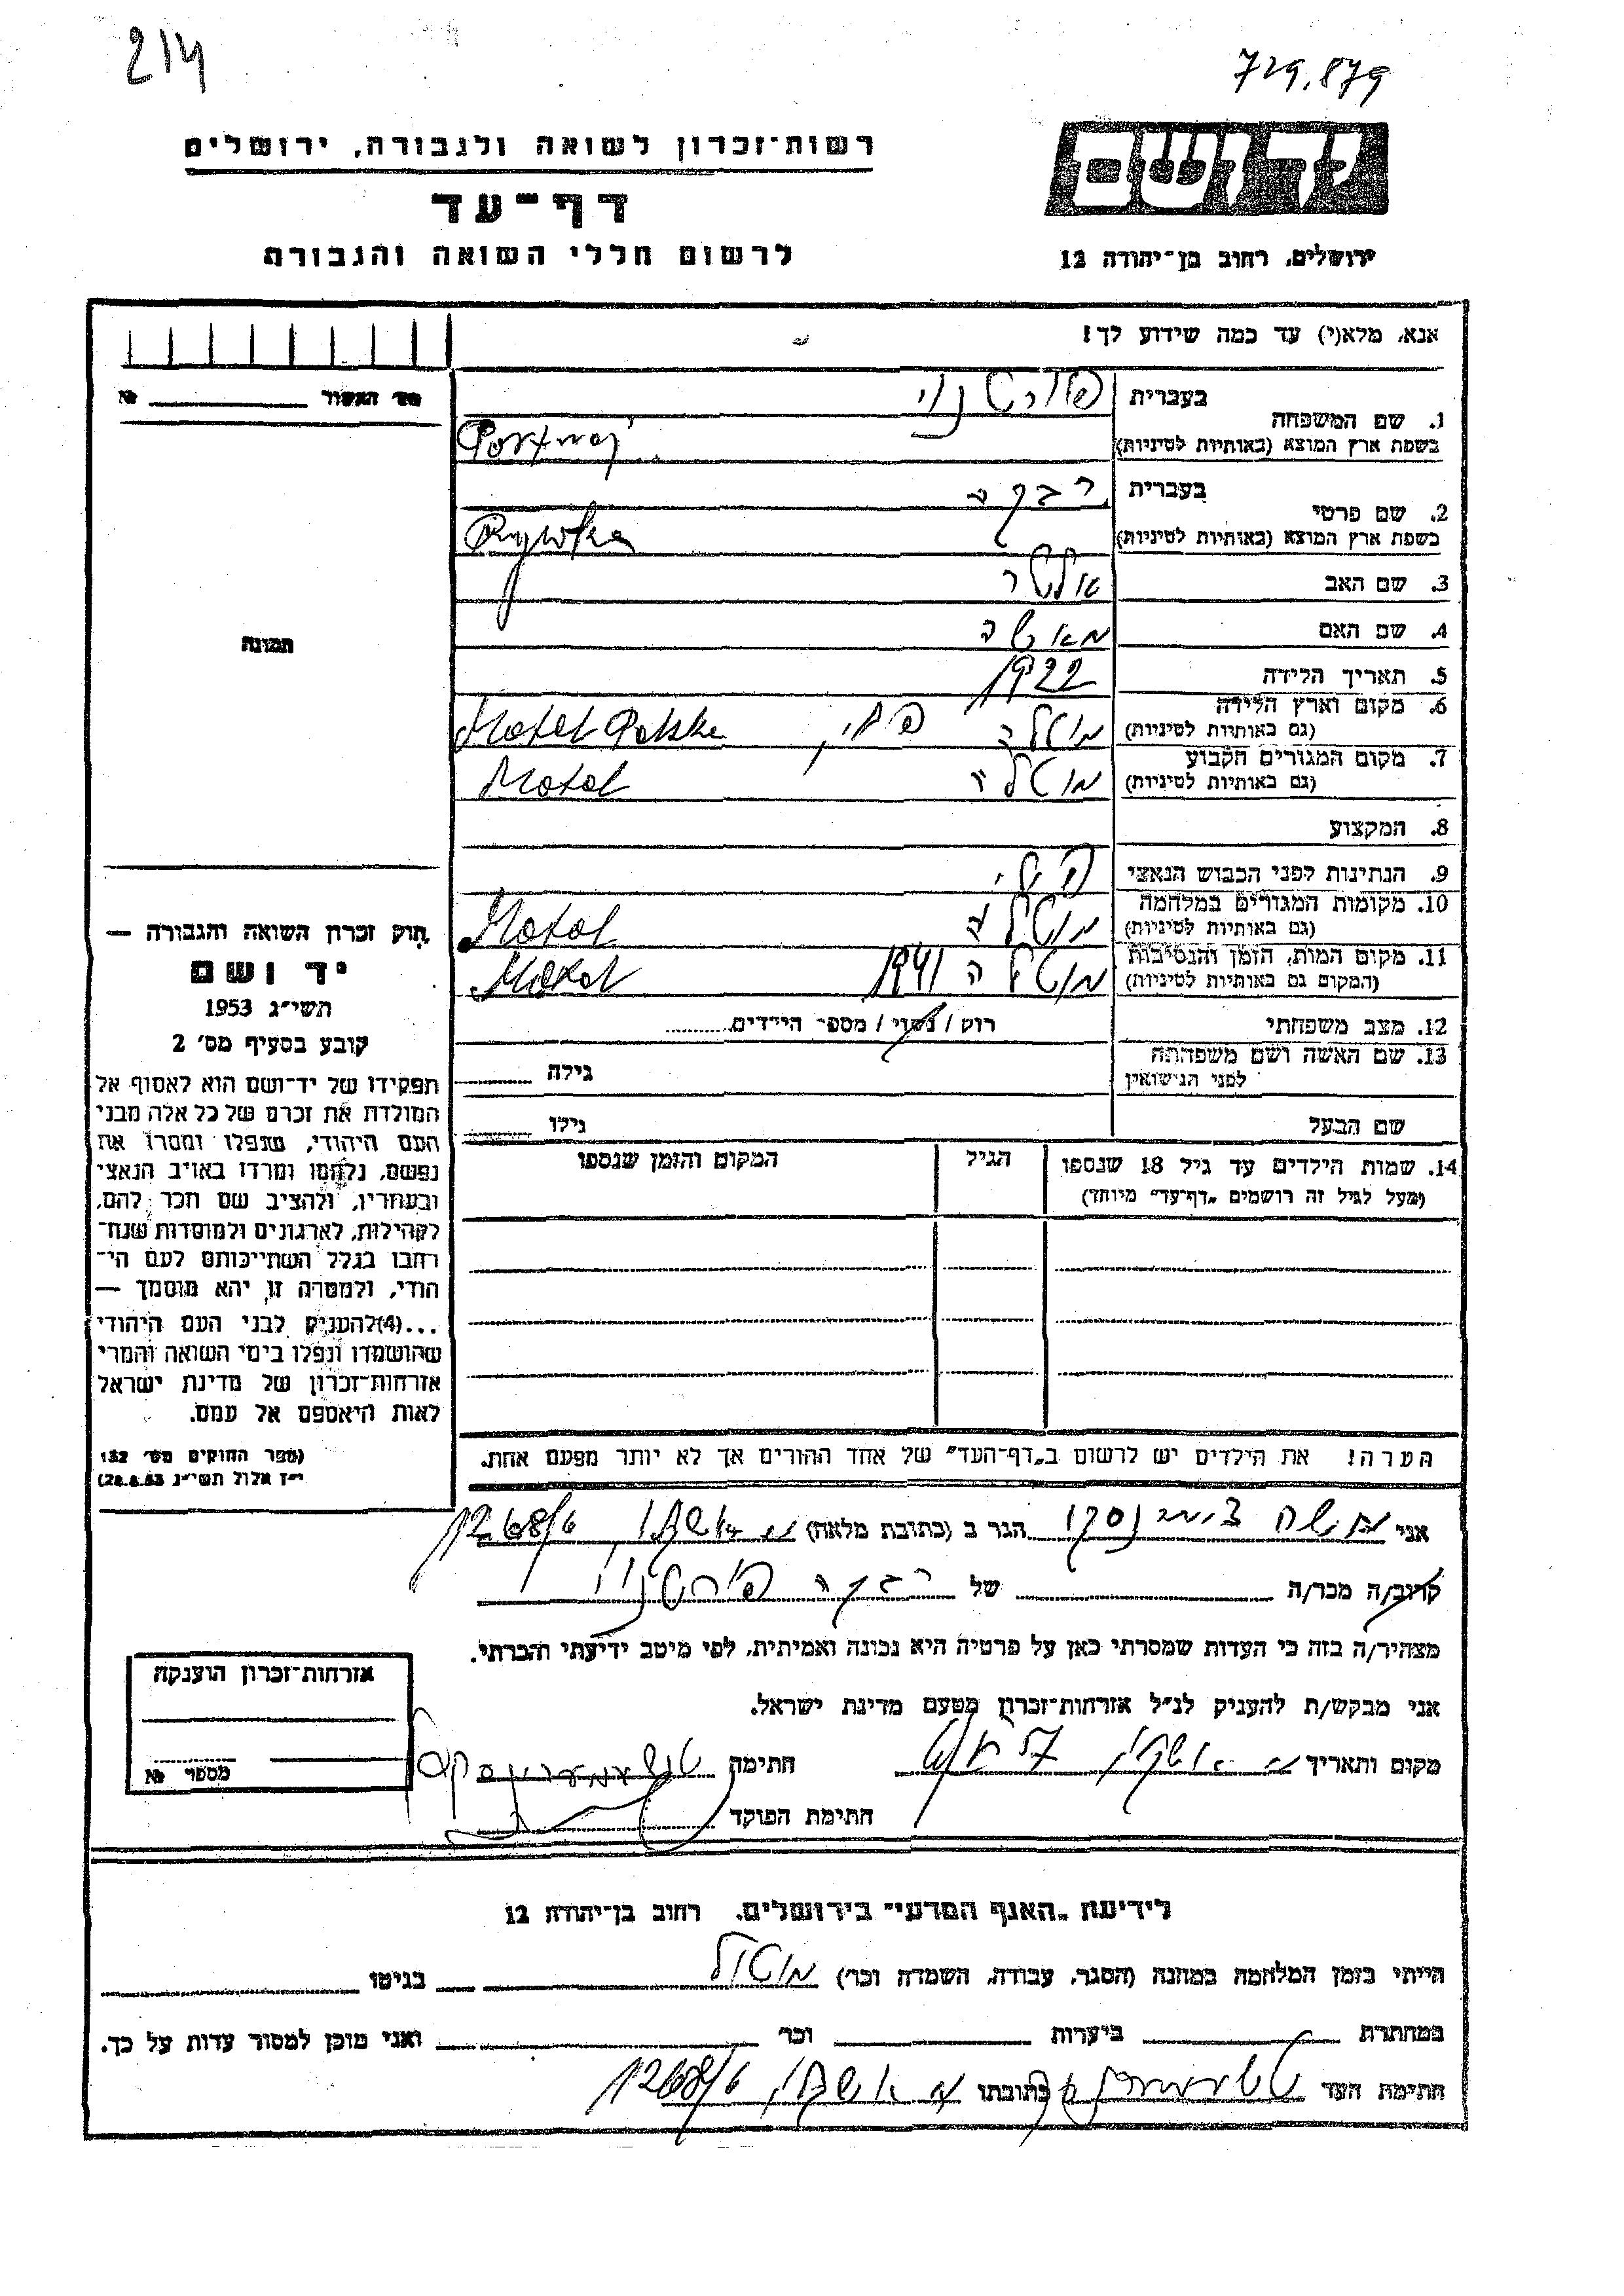 214
729.879
רשות־זכרון לשואה ולגבורה, ירושלים
דף־עד
לרשום חללי השואה והגבורה
יד ושם
ירושלים, רחוב בן־יהודה 12
אנא, מלא(י) עד כמה שידוע לך!
מס' האשור № ________
תמונה
1. שם המשפחה
בעברית
פורטנוי
בשפת ארץ המוצא (באותיות לטיניות)
Portnoj
2. שם פרטי
בעברית
רבקה
בשפת ארץ המוצא (באותיות לטיניות)
Rywka
3. שם האב
אלטר
4. שם האם
מאשה
5. תאריך הלידה
1922
6. מקום וארץ הלידה
(גם באותיות לטיניות)
מוטלה Motol Polska
7. מקום המגורים הקבוע
(גם באותיות לטיניות)
מוטלה Motol
8. המקצוע
9. הנתינות לפני הכבוש הנאצי
10. מקומות המגורים במלחמה
(גם באותיות לטיניות)
מוטלה Motol
11. מקום המות, הזמן והנסיבות
(המקום גם באותיות לטיניות)
מוטלה 1941 Motol
12. מצב משפחתי
רוק / נשוי / מספר הילדים
13. שם האשה ושם משפחתה
לפני הנישואין
גילה
שם הבעל
גילו
14. שמות הילדים עד גיל 18 שנספו
(מעל לגיל זה רושמים „דף־עד” מיוחד)
הגיל
המקום והזמן שנספו
הערה! את הילדים יש לרשום ב„דף־העד” של אחד ההורים אך לא יותר מפעם אחת.
חוק זכרון השואה והגבורה —
יד ושם
תשי״ג 1953
קובע בסעיף מס׳ 2
תפקידו של יד־ושם הוא לאסוף אל
המולדת את זכרם של כל אלה מבני
העם היהודי, שנפלו ומסרו את
נפשם, נלחמו ומרדו באויב הנאצי
ובעוזריו, ולהציב שם וזכר להם,
לקהילות, לארגונים ולמוסדות שנח־
רבו בגלל השתייכותם לעם הי־
הודי, ולמטרה זו יהא מוסמך —
...(4)להעניק לבני העם היהודי
שהושמדו ונפלו בימי השואה והמרי
אזרחות־זכרון של מדינת ישראל
לאות היאספם אל עמם.
(ספר החוקים מס׳ 132
י״ז אלול תשי״ג 28.8.53)
אני הגר ב (כתובת מלאה) 1268/6
קרוב/ה מכר/ה של רבקה פורטנוי
מצהיר/ה בזה כי העדות שמסרתי כאן על פרטיה היא נכונה ואמיתית, לפי מיטב ידיעתי והכרתי.
אני מבקש/ת להעניק לנ״ל אזרחות־זכרון מטעם מדינת ישראל.
מקום ותאריך חתימה
חתימת הפוקד
אזרחות־זכרון הוענקה
מספר №
לידיעת „האגף המדעי” בירושלים, רחוב בן־יהודה 12
הייתי בזמן המלחמה במחנה (הסגר, עבודה, השמדה וכו׳) מוטול בגיטו
במחתרת ביערות וכו׳ ואני מוכן למסור עדות על כך.
חתימת העד כתובתו 1268/6